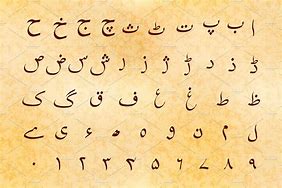 ا ب پ ت ٹ ث ج چ ح خ
د ڈ ذ ر ڑ ز ژ س ش ص ض
ط ظ ع غ ف ق ک گ
ل م ن و ہ ء ی ے
۰ ۱ ۲ ۳ ۴ ۵ ۶ ۷ ۸ ۹